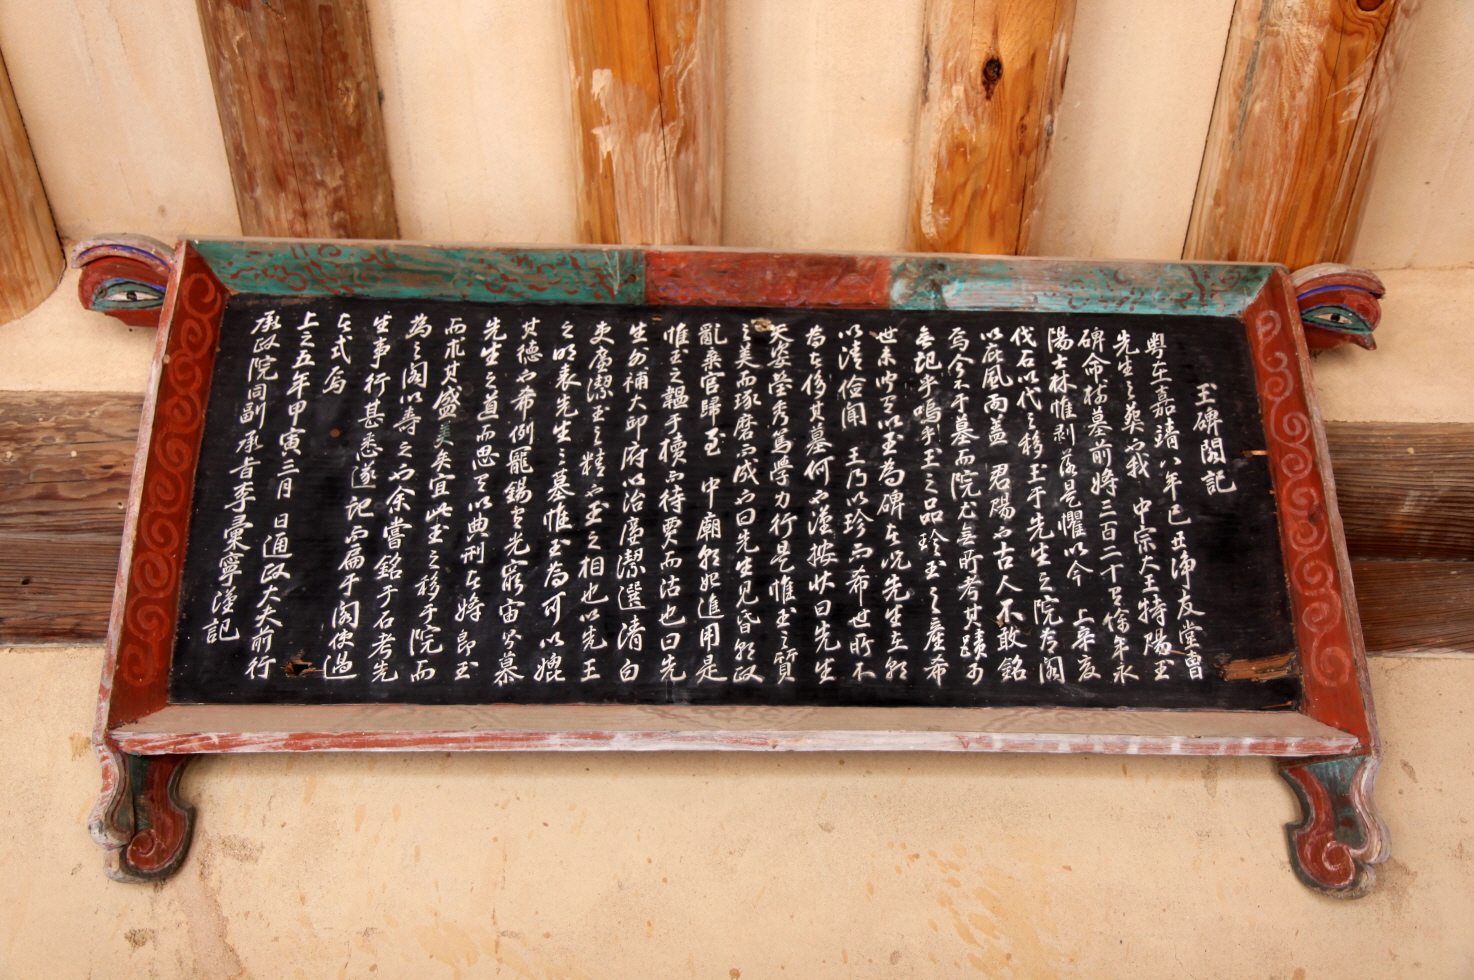 玉碑閣記
粤在嘉靖八年己丑淨友堂曾
先生之葬也我 中宗大王特賜玉
碑命樹墓前將三百二十有餘年永
陽士林惟剥落是懼以今 上辛亥
伐石以代之移玉于先生之院为閣
以庇風雨盖 君賜也古人不敢銘
焉今不于墓而院尤無所考其蹟可
無記乎嗚乎玉之品珍玉之産希
世未聞有以玉為碑在况先生立朝
以清儉聞 王乃以珍而希世所不
為在侈其墓何也謹按狀曰先生
天姿瑩秀篤學力行是惟玉之質
之美而琢磨而成也曰先生見昏朝政
亂棄官歸至 中廟朝始進用是
惟玉之韞于櫝而待賈而沽也曰先
生出補大邱府以治廉潔選清白
吏廉潔玉之精也玉之相也以先王
之明表先生之墓惟玉為可以媲
其德也希例寵錫光窮宙兮慕
先生之道而思有以典刑在將 即玉
而求其盛美矣宜此玉之移于院而
為之閣以壽之也余嘗銘于石考先
生事行甚悉遂記而扁于閣使過
在式焉
上之五年甲寅三月 日通政大夫前行
承政院同副承旨李彙寧謹記